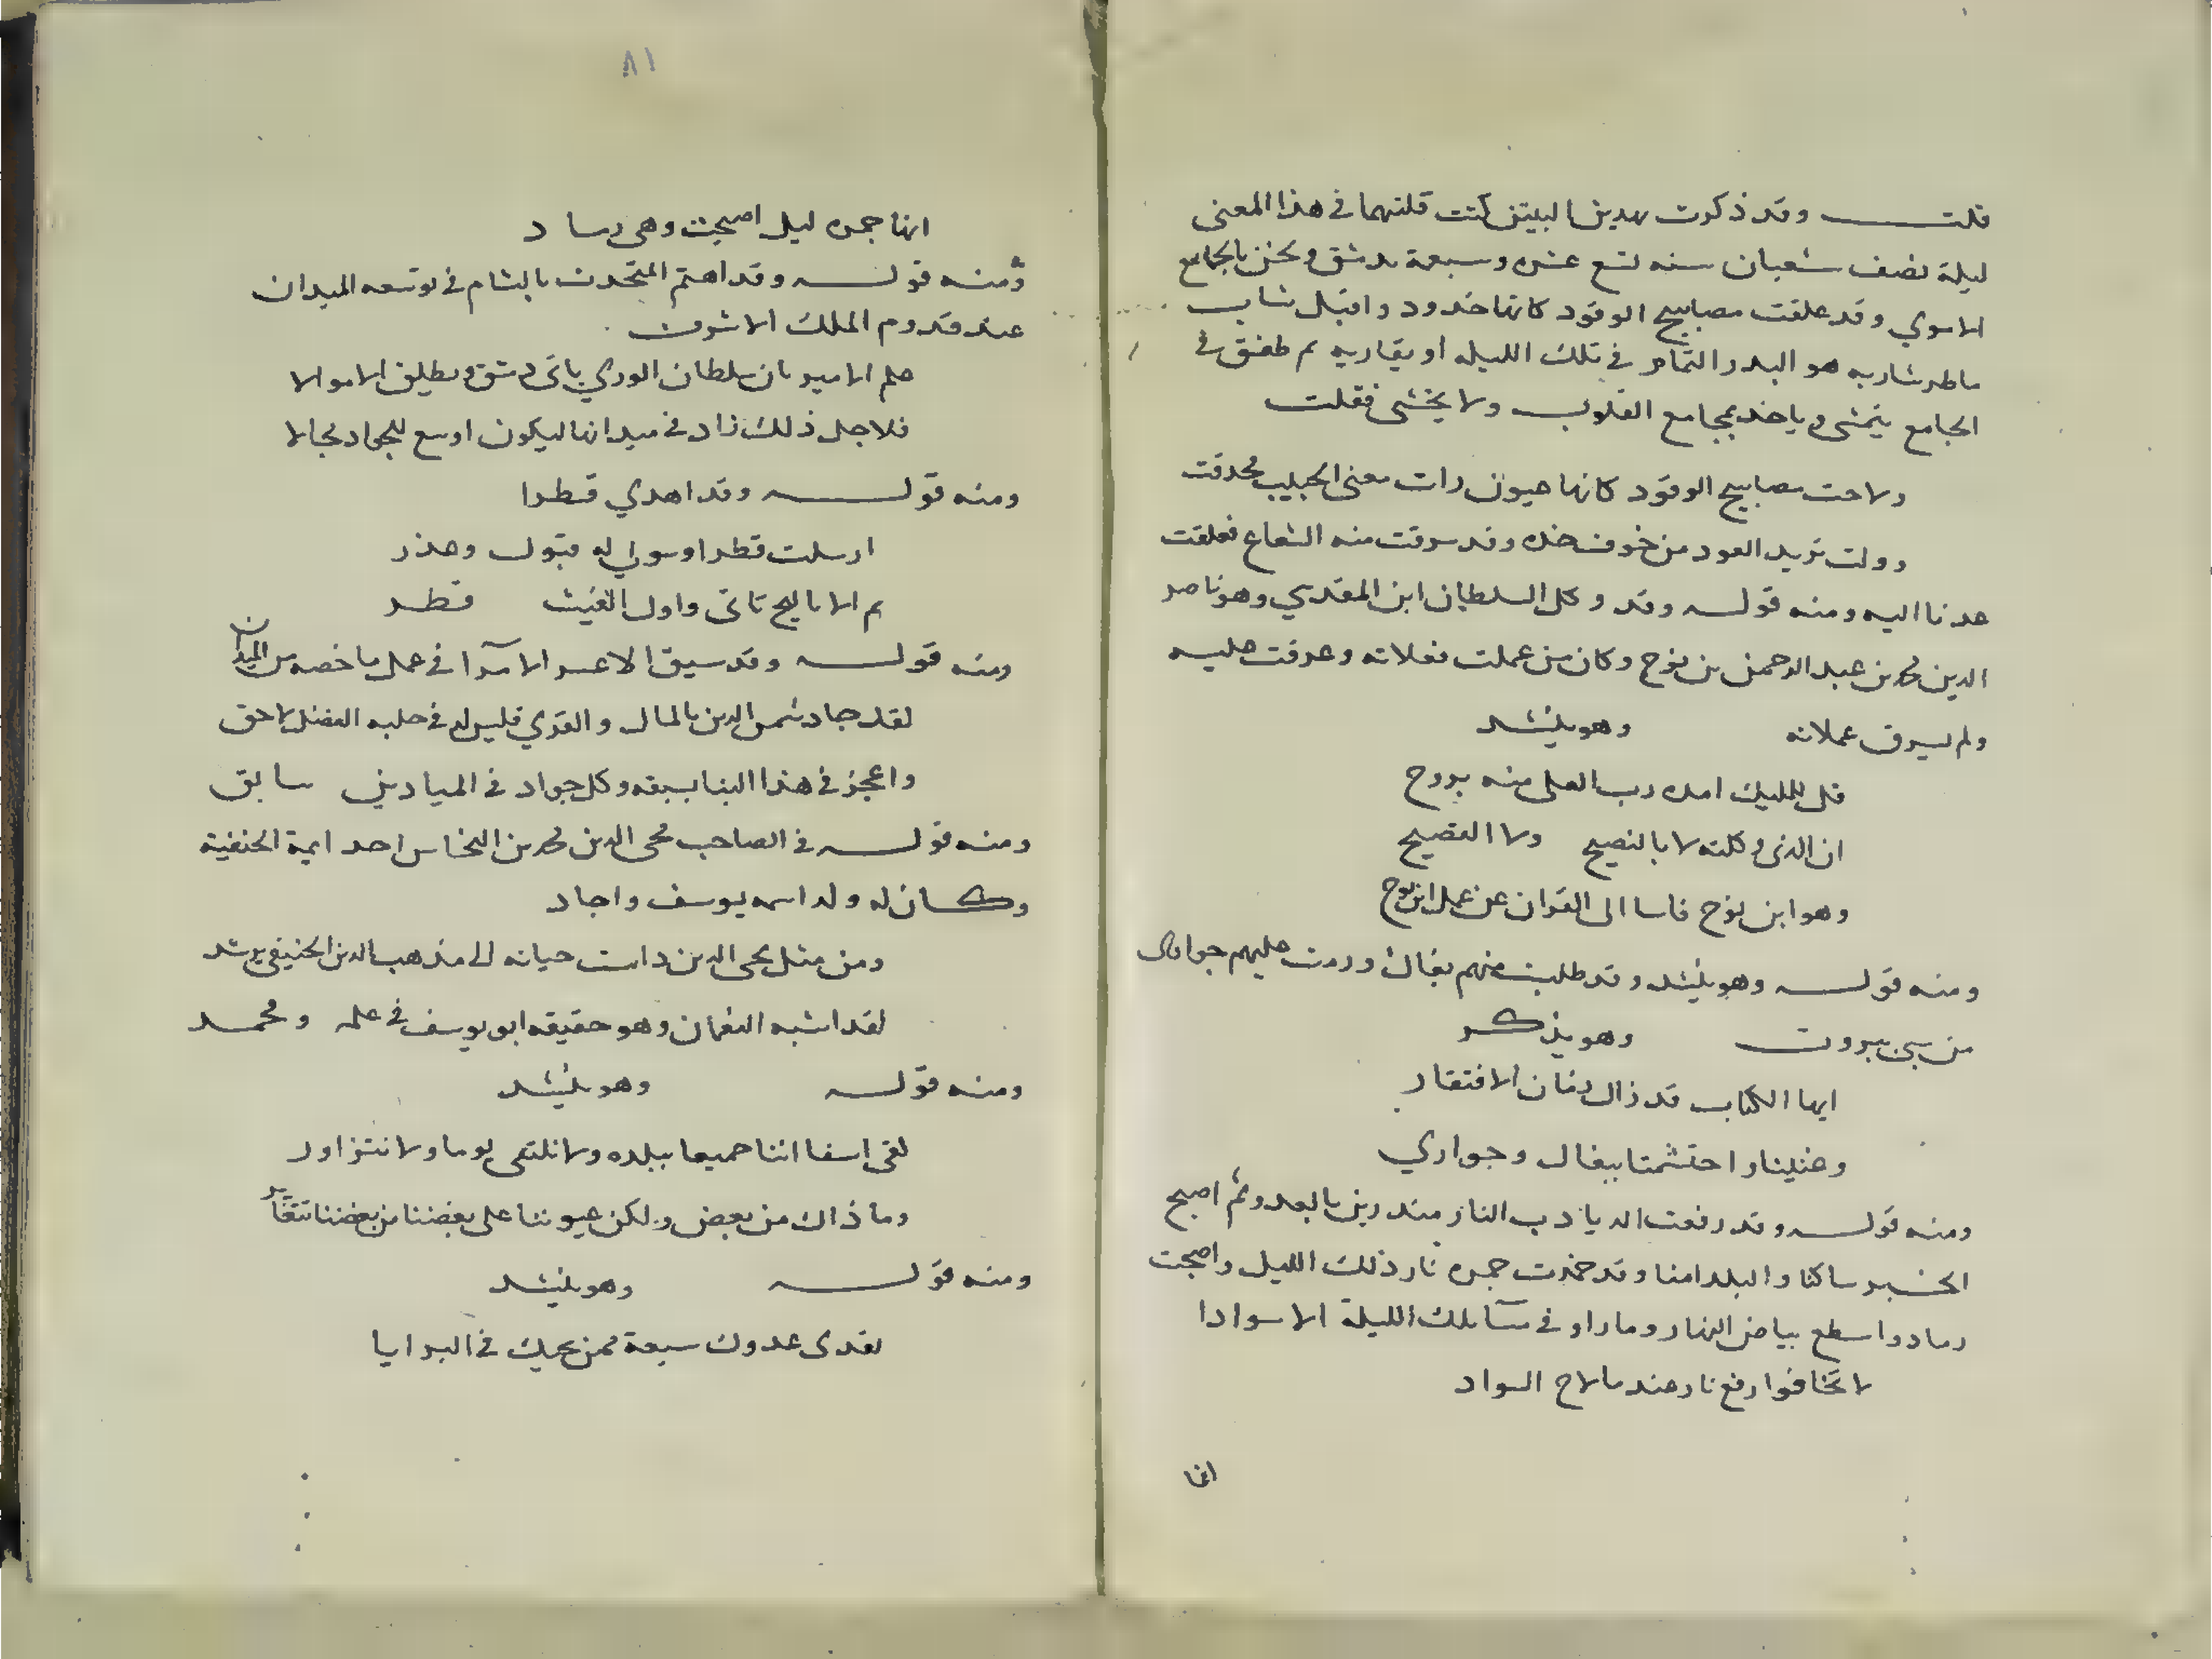 قلت وقد ذكرت بهدين البيتين كنت قلتهما في هذا المعنى
ليلة نصف شعبان سنه تسع عشره وسبعمة بدمشق ونحن بالجامع
الاموي وقد علقت مصابيح الوقود كانها خدود واقبل شاب
ماطر شاربه هو البدر التمام في تلك الليله او يقاربه ثم طفق في
الجامع يتمشى وياخذ بمجامع القلوب ولا يخشى فقلت
ولاحت مصابيح الوقود كانها عيون رات معنى الحبيب فحدقت
وولت تريد العود من خوف خده وقد سرقت منه الشعاع فعلقت
عدنا اليه ومنه قوله وقد وكل السلطان ابن المقدسي وهو ناصر
الدين محمد بن عبد الرحمن بن نوح وكان من عملت فعلاته وعرفت عليه
ولم يسرق عملاته وهو ينشد
قل للمليك امده رب العلى منه بروح
ان الذي وكلته لا بالنصيح ولا الفصيح
وهو ابن نوح فاسا الى القران عن عمل ابن نوح
ومنه قوله وهو ينشد وقد طلبت منهم بغال ورمت عليهم جوار
من سبي بيروت وهو يذكر
ايها الكتاب قد زال زمان الافتقار
وغنينا واحتشمنا ببغال وجواري
ومنه قوله وقد رفعت الديادب النار منذرين بالعدو ثم اصبح
الخبر ساكنا والبلد امنا وقد خمدت جمره نار ذلك الليل واصبحت
رمادا سطع بياض النهار وما راو في سآ تلك الليلة الا سوادا
لا تخافوا رفع نار عندما لاح السواد
انها
٨١
انها جمره ليل اصبحت وهي رماد
ومنه قوله وقد اهتم المتحدث بالشام في توسعه الميدان
عند قدوم الملك الاشرف
علم الامير بان سلطان الورى ياتي دمشق ويطلق الاموالا
فلاجل ذلك زاد في ميدانها ليكون اوسع للجواد مجالا
ومنه قوله وقد اهدي قطرا
ارسلت قطرا وسوالي له قبول وعذر
ثم الاباليج تاتي واول الغيث قطر
ومنه قوله وقد سبق الاعسر الامرآ في عمل ما خصه من الميدان
لقد جاد شمس الدين بالمال والقرى فليس له في حلبه الفضل لاحق
واعجز في هذا البنا بسبقه وكل جواد في الميادين سابق
ومنه قوله في الصاحب محى الدين محمد بن النحاس احد ايمة الحنفية
وكان له ولد اسمه يوسف واجاد
ومن مثل محى الدين دامت حياته الى مذهب الدين الحنيفي يرشد
لقد اشبه النعمان وهو حقيقه ابو يوسف في علمه ومحمد
ومنه قوله وهو ينشد
لفى اسفا اننا جميعا ببلده ولا نلتقى يوما ولا نتزاور
وما ذاك من بعض ولكن عيوننا على بعضنا من بعضنا
ومنه قوله وهو ينشد
لفدى عدوك سبعة ممن يحبك في البرايا